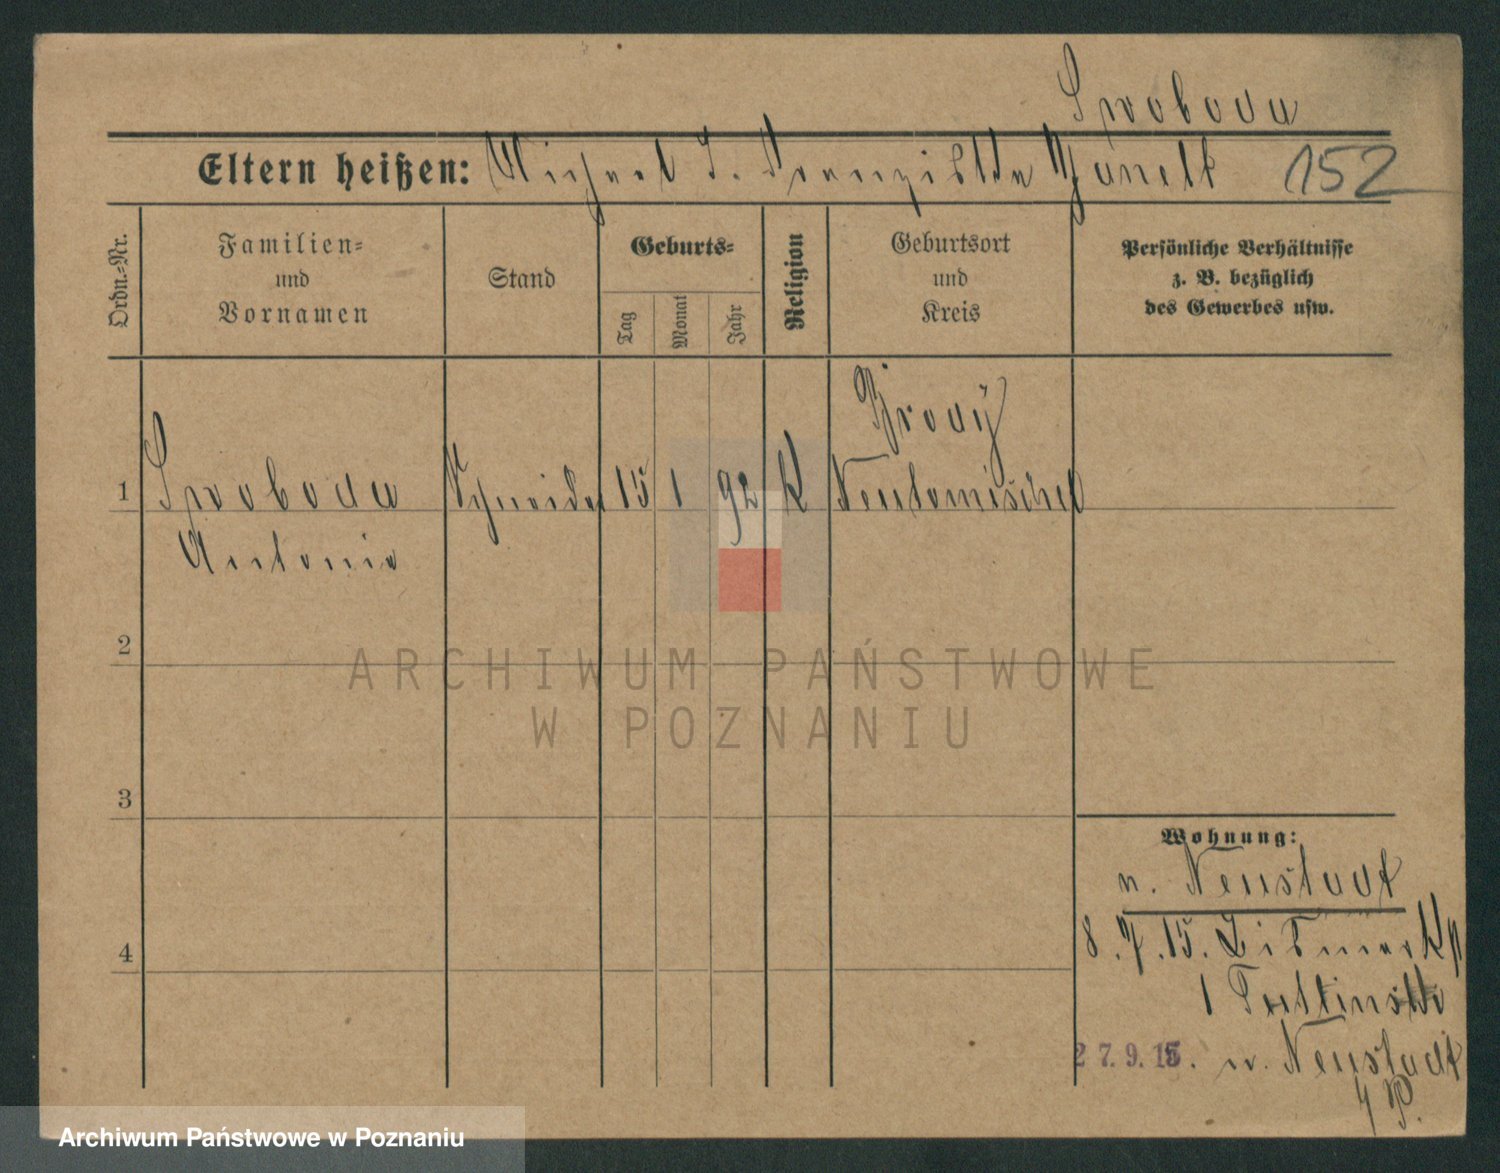 Swoboda
Eltern heißen: Michael S. Franziska Janelt 152
Ordn.=Nr.
Familien=
und
Vornamen
Stand
Geburts=
Tag
Monat
Jahr
Religion
Geburtsort
und
Kreis
Persönliche Verhältnisse
z. B. bezüglich
des Gewerbes usw.
Brody
1 Swoboda Schneider 15 1 92 K Neutomischel
Antonie
2
3
4
Wohnung:
n. Neustadt
8.7.15. Bismarck
1
27.9.15. n. Neustadt
ARCHIWUM PAŃSTWOWE
W POZNANIU
Archiwum Państwowe w Poznaniu